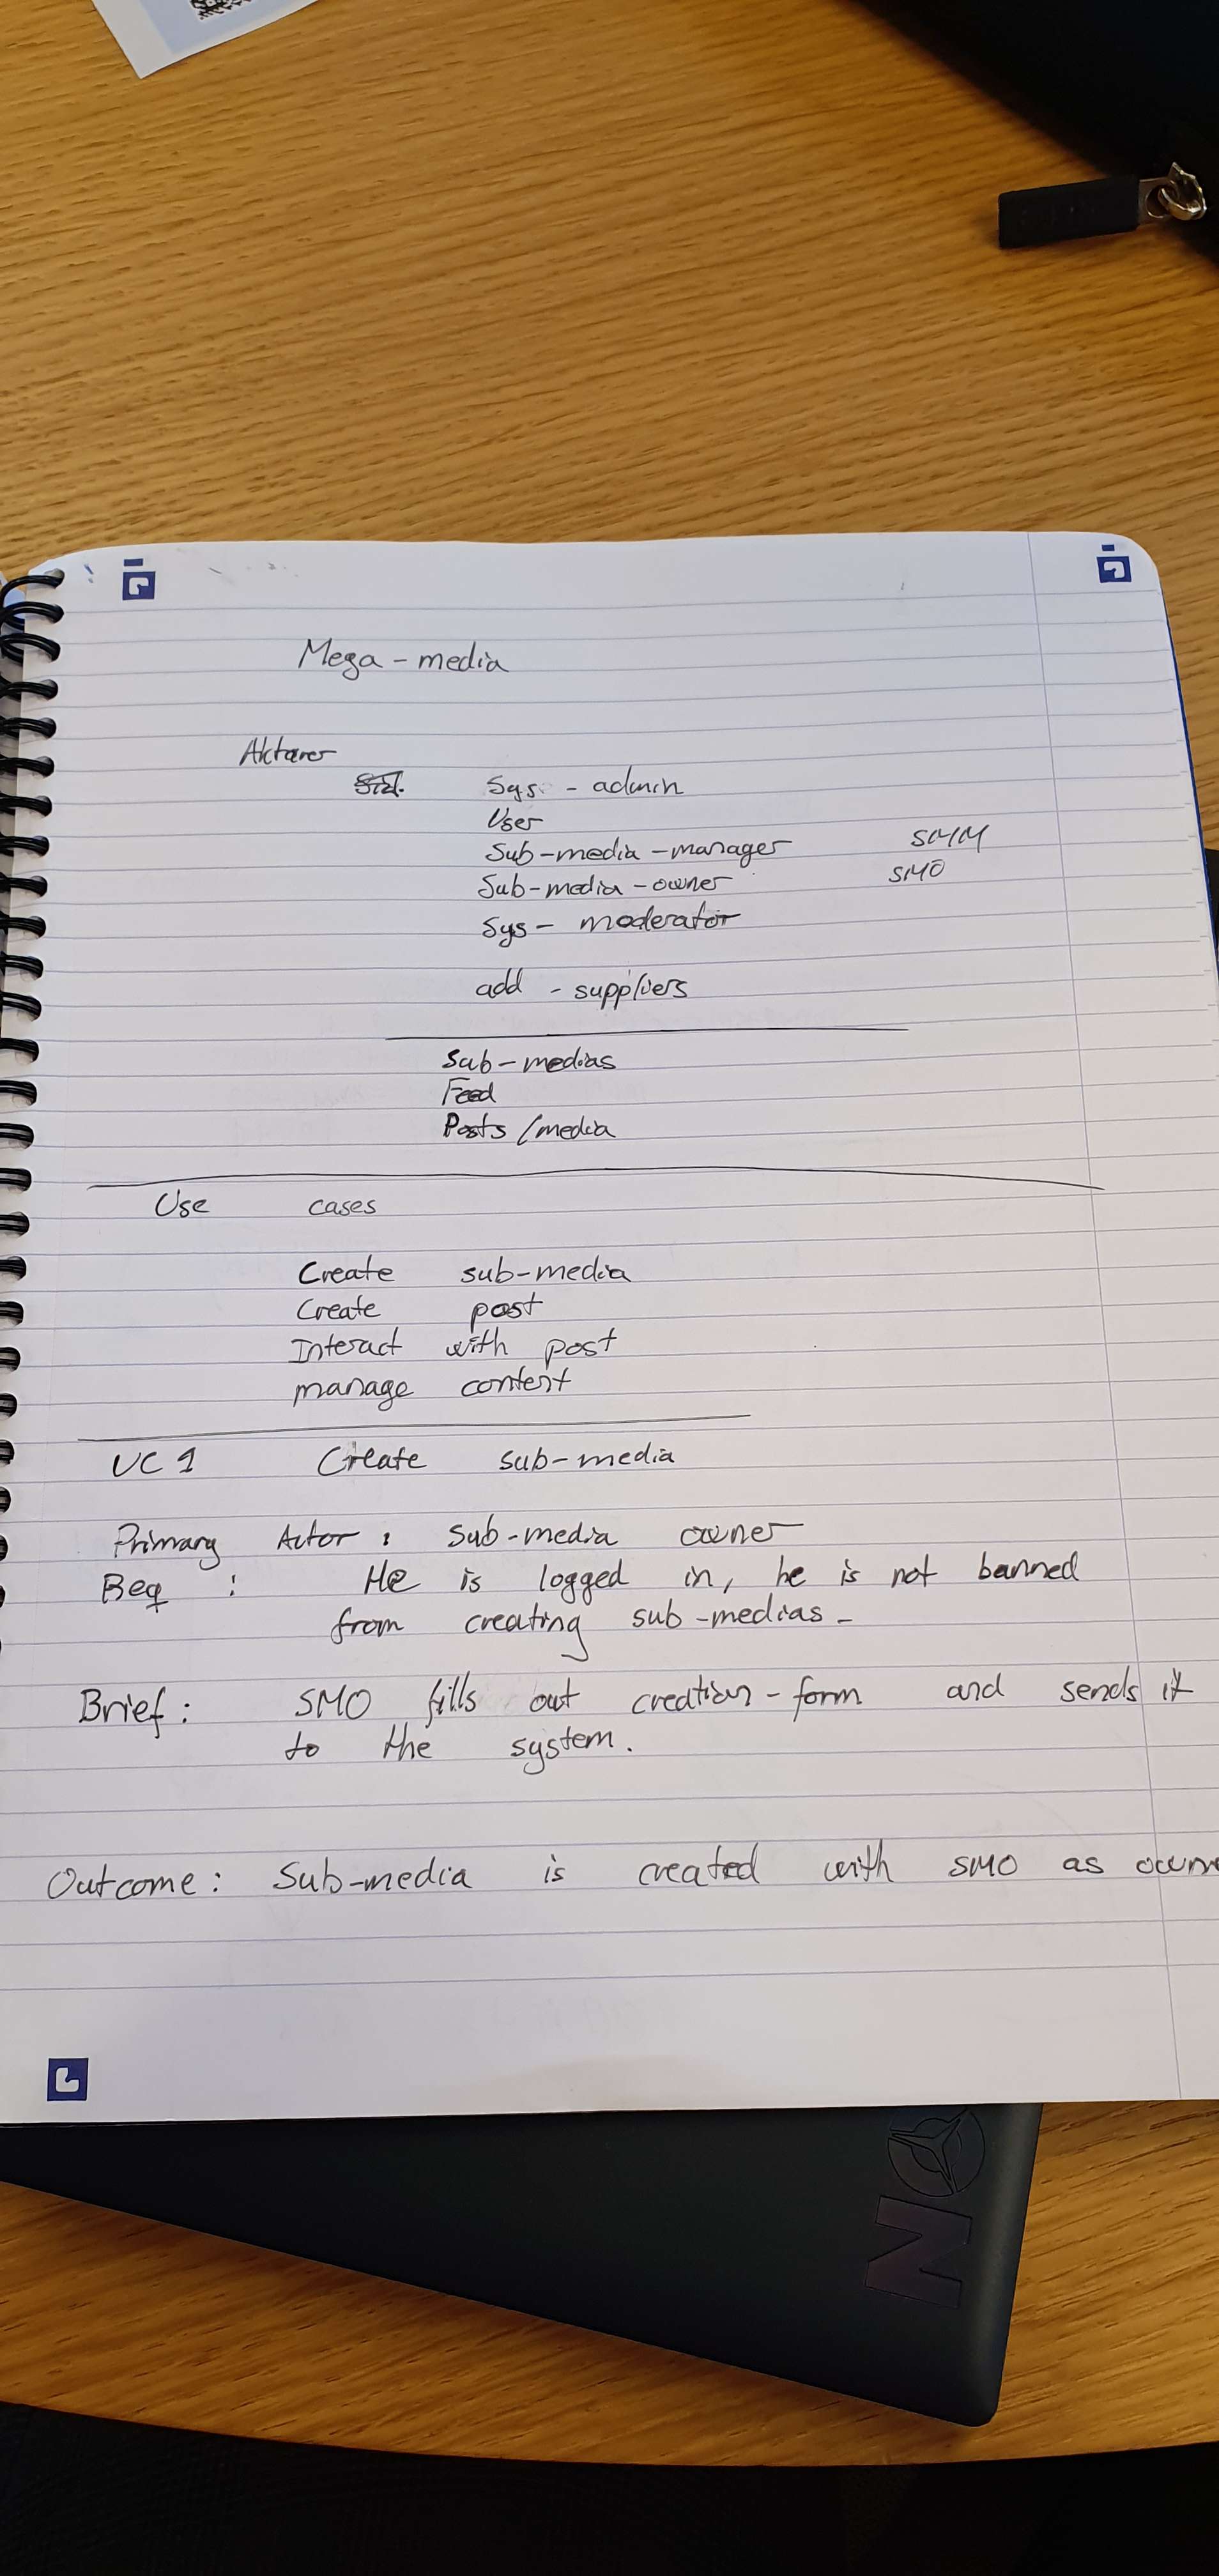 Mega-media
Aktører
Sys - admin
User
Sub-media-manager SMM
Sub-media-owner SMO
Sys- moderator
add - suppliers
Sub-medias
Feed
Posts/media
Use cases
Create sub-media
Create post
Interact with post
manage content
UC 1 Create sub-media
Primary Actor: Sub-media owner
Beq : He is logged in, he is not banned
from creating sub-medias-
Brief: SMO fills out creation-form and sends it
to the system.
Outcome: Sub-media is created with SMO as owne
NO